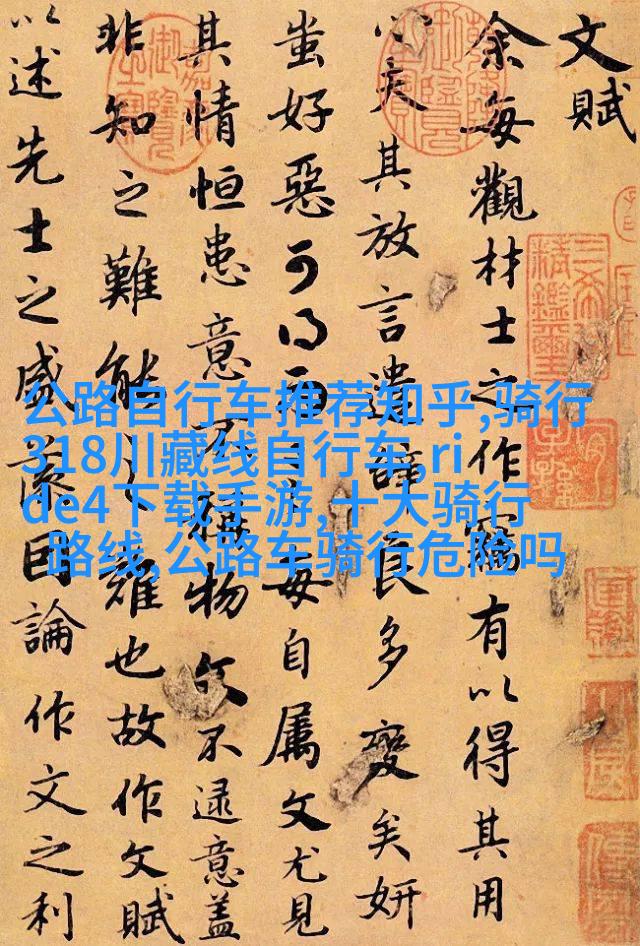 文賦
余每觀材士之作竊有以得其用
心夫其放言遣辭良多變矣妍
蚩好惡可得而每自属文尤見
其情恒患意不稱物文不逮意盖
非知之難能之難也故作文賦
以述先士之盛藻因論作文之利
公路自行车推荐知乎,骑行
318川藏线自行车,ri
de4下载手游,十大骑行
路线,公路车骑行危险吗